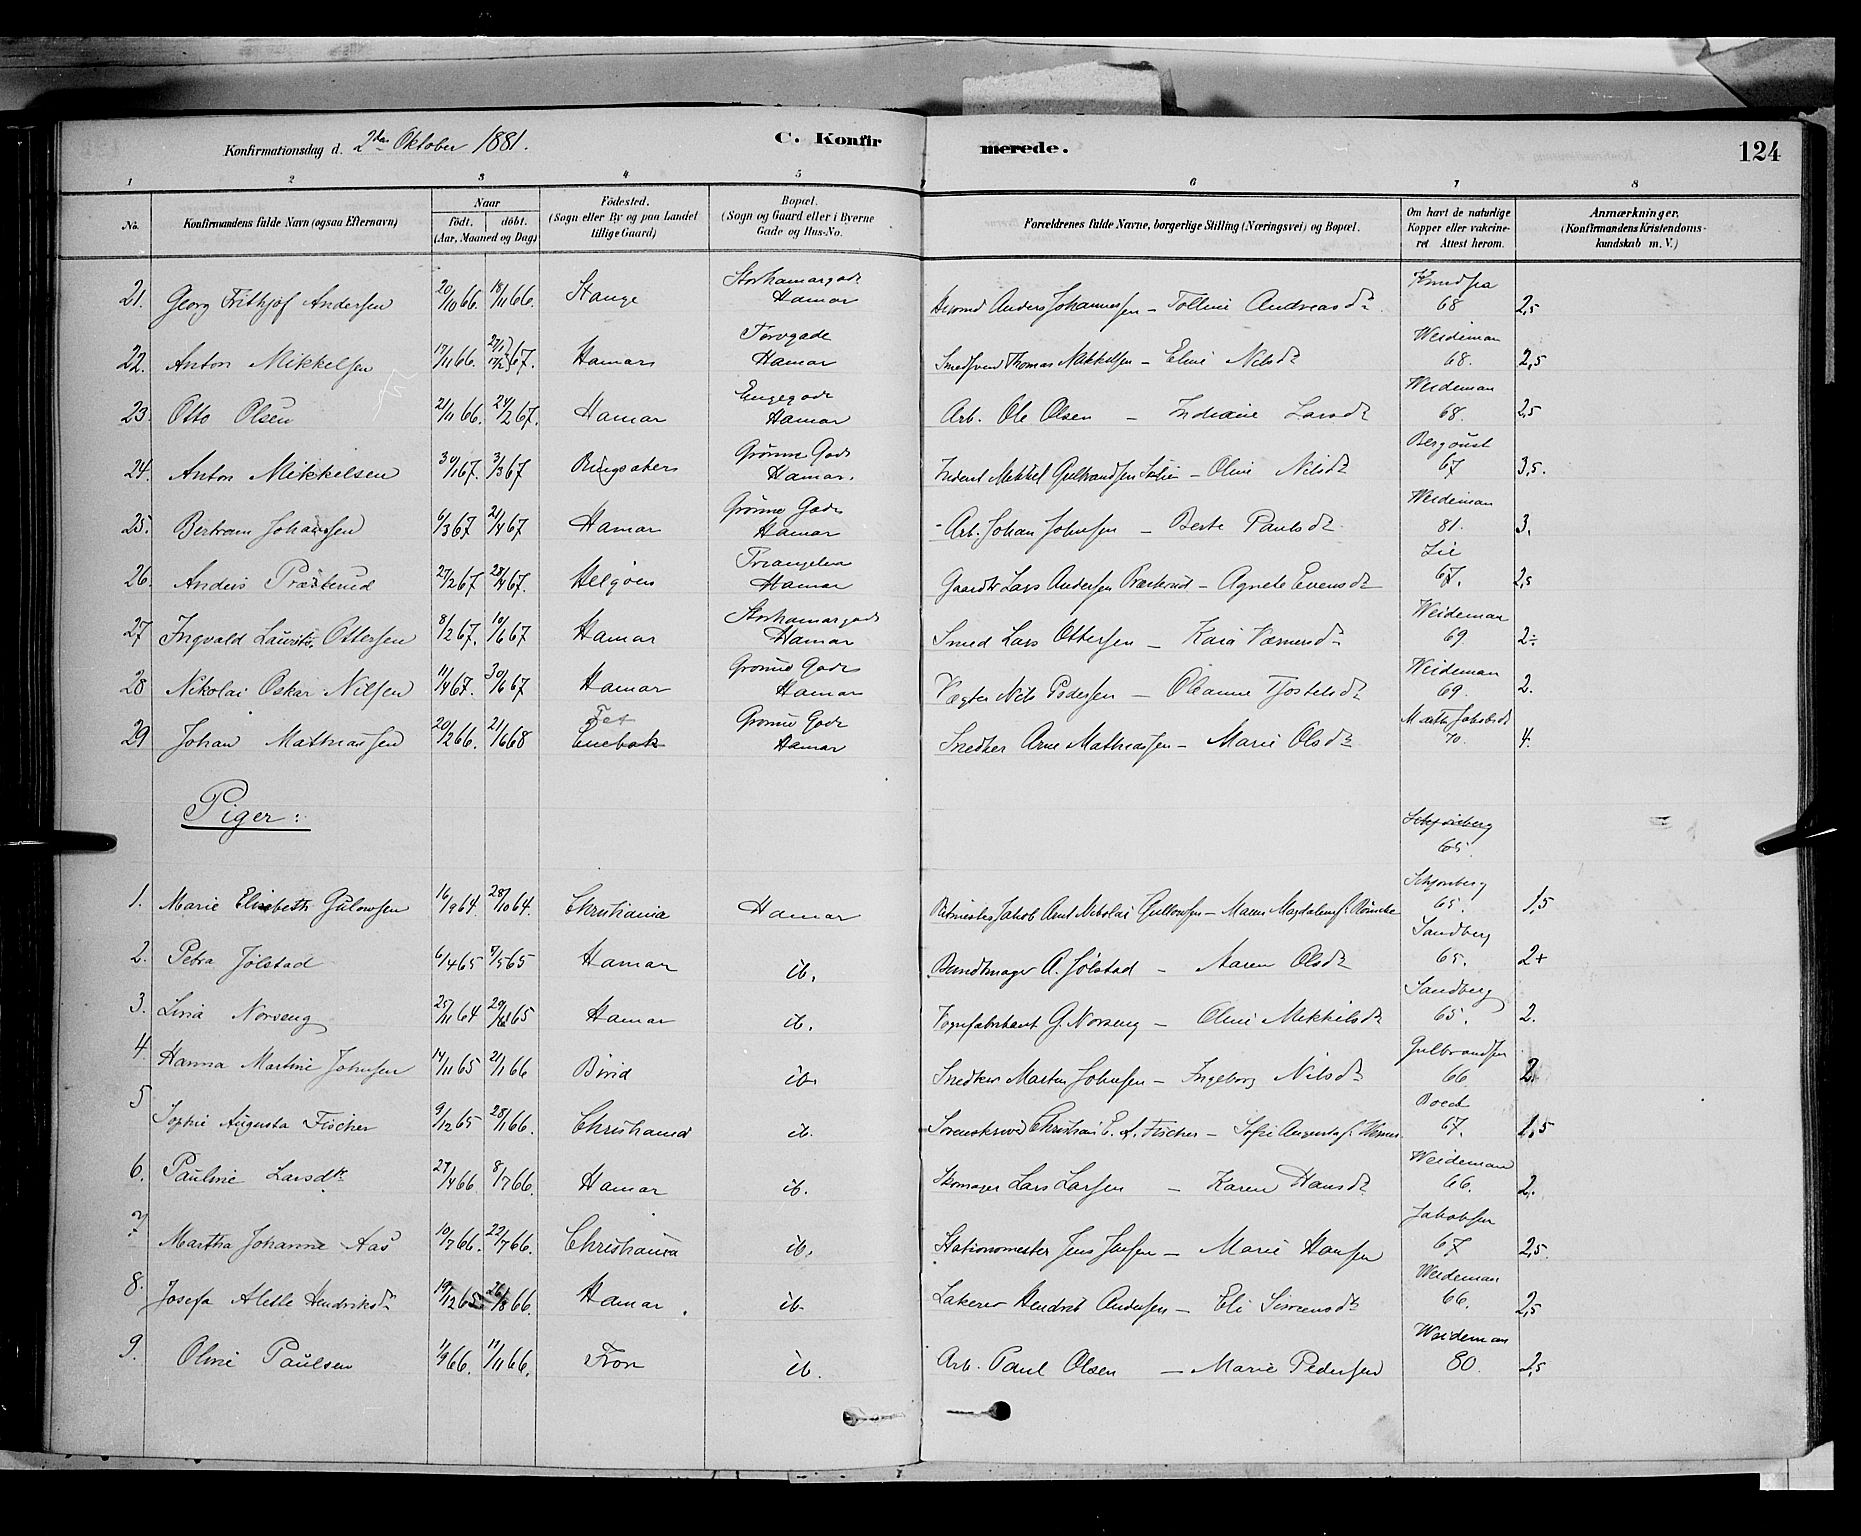 Konfirmationsdag d. 2den Oktober 1881. C. Konfirmerede. 124
1 2 3 4 5 6 7 8
No. Konfirmandens fulde Navn (ogsaa Efternavn) Naar født. døbt. (Aar, Maaned og Dag) Fødested. (Sogn eller By og paa Landet tillige Gaard) Bopæl. (Sogn og Gaard eller i Byerne Gade og Hus-No. Forældrenes fulde Navne, borgerlige Stilling (Næringsvei) og Bopæl. Om havt de naturlige Kopper eller vakcineret Attest herom. Anmærkninger. (Konfirmandens Kristendomskundskab m. V.)
21. Georg Frithjof Andersen 20/10 66. 18/11 66. Stange Storhamargade Hamar Anders Johannessen – Andreasdr. 68 2,5
22. Anton Mikkelsen 17/11 66. 67. Hamar Torvgade Hamar Thomas Mikkelsen – Eline Nilsdr Weideman 68. 2,5
23. Otto Olsen 21/11 66. 24/2 67. Hamar Engegade Hamar Arb. Ole Olsen – Indiane Larsdr Weideman 68. 2,5
24. Anton Mikkelsen 30/1 67. 3/3 67 Ringsaker Grønne Gade Hamar. Mikkel Gulbrandsen – Oline Nilsdr 67 3,5.
25. Bertram Johansen 6/3 67 21/4 67 Hamar Grønne Gade Hamar Arb. Johan Johnsen – Berte Paulsdr Weideman 81. 3.
26. Anders Præsterud 27/2 67. 28/4 67. Helgøen Triangelen Hamar Gaardbr Lars Andersen Præsterud – Agnete Evensdr Lie 67. 2,5
27 Ingvald Laurits Ottersen 8/2 67. 10/6 67 Hamar Storhamargade Hamar Smed Lars Ottersen – Weideman 69 2÷
28 Nikolai Oskar Nilsen 11/4 67. 30/6 67 Hamar Grønne Gade Hamar Vægter Nils Pedersen – Oleanne Weideman 69. 2.
29 Johan Mathiassen 20/2 66. 21/6 68 Fet Enebak Grønne Gade Hamar Snedker Arne Mathiassen – Marie Olsdr 70. 4.
Piger:
65.
1. Marie Elisabeth Gulowsen 16/9 64. 28/10 64. Christiania Hamar Jakob Nikolai Gullowsen – Maren 65. 1,5
2. Petra Jølstad 6/4 65 7/5 65 Hamar ib. Bundtmager A. Jølstad – Maren Olsdr Sandberg 65. 2+
3. Lina Norseng 25/11 64 65 Hamar ib. Vognfabrikant G. Norseng – Oline Mikkelsdr Sandberg 65. 2.
4. Hanna Martine Johnsen 14/11 65 21/1 66 Birid ib. Snedker Martin Johnsen – Ingeborg Nilsdr Gulbrandsen 66 2.
5 Sophie Augusta Fischer 9/12 65 28/1 66. Christiania ib. Sorenskriver Christian E. A. Fischer – Sofie Augusta f. Boeck 67. 1,5
6. Pauline Larsdtr 27/4 66 8/7 66. Hamar ib. Skomager Lars Larsen – Karen Hansdr Weideman 66. 2.
7. Martha Johanne Aas 10/7 66. 22/7 66. Christiania ib. Stationsmester Jens Jensen – Marie Hansen Jakobsen 67 2,5.
8. Josefa Alette Hendriksdr 19/12 65 26/8 66. Hamar. ib. Hendrik Andersen – Eli Simensdr Weideman 66. 2,5
9. Oline Paulsen 1/9 66. 11/11 66. Fron ib. Arb. Paul Olsen – Marie Pedersen Weideman 80. 2,5